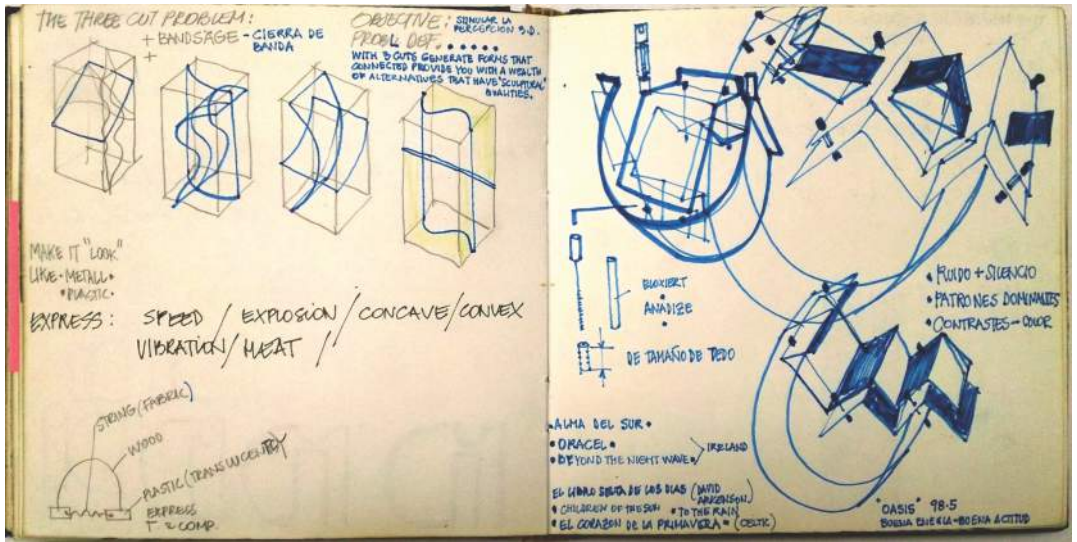 THE THREE CUT PROBLEM:
+ BANDSÄGE - CIERRA DE
BANDA
+
OBJECTIVE: STIMULAR LA
PERCEPCIÓN 3.D.
PROBL DEF. . . . . .
WITH 3 CUTS GENERATE FORMS THAT
CONNECTED PROVIDE YOU WITH A WEALTH
OF ALTERNATIVES THAT HAVE "SCULPTURAL"
QUALITIES.
MAKE IT "LOOK"
LIKE • METALL •
• PLASTIC •
EXPRESS: SPEED / EXPLOSION / CONCAVE/CONVEX
VIBRATION/ HEAT /
STRING (FABRIC)
WOOD
PLASTIC (TRANSLUCENT)
EXPRESS
2 COMP.
DE TAMAÑO DE DEDO
• RUIDO + SILENCIO
• PATRONES DOMINANTES
• CONTRASTES - COLOR
• ALMA DEL SUR •
• ORACEL •
• BEYOND THE NIGHT WAVE •
IRELAND
EL LIBRO DE LOS DIAS (DAVID
ARKENSON)
• CHILDREN OF THE SUN • TO THE RAIN
• EL CORAZON DE LA PRIMAVERA • (CELTIC)
"OASIS" 98.5
BUENA ENERGIA - BUENA ACTITUD